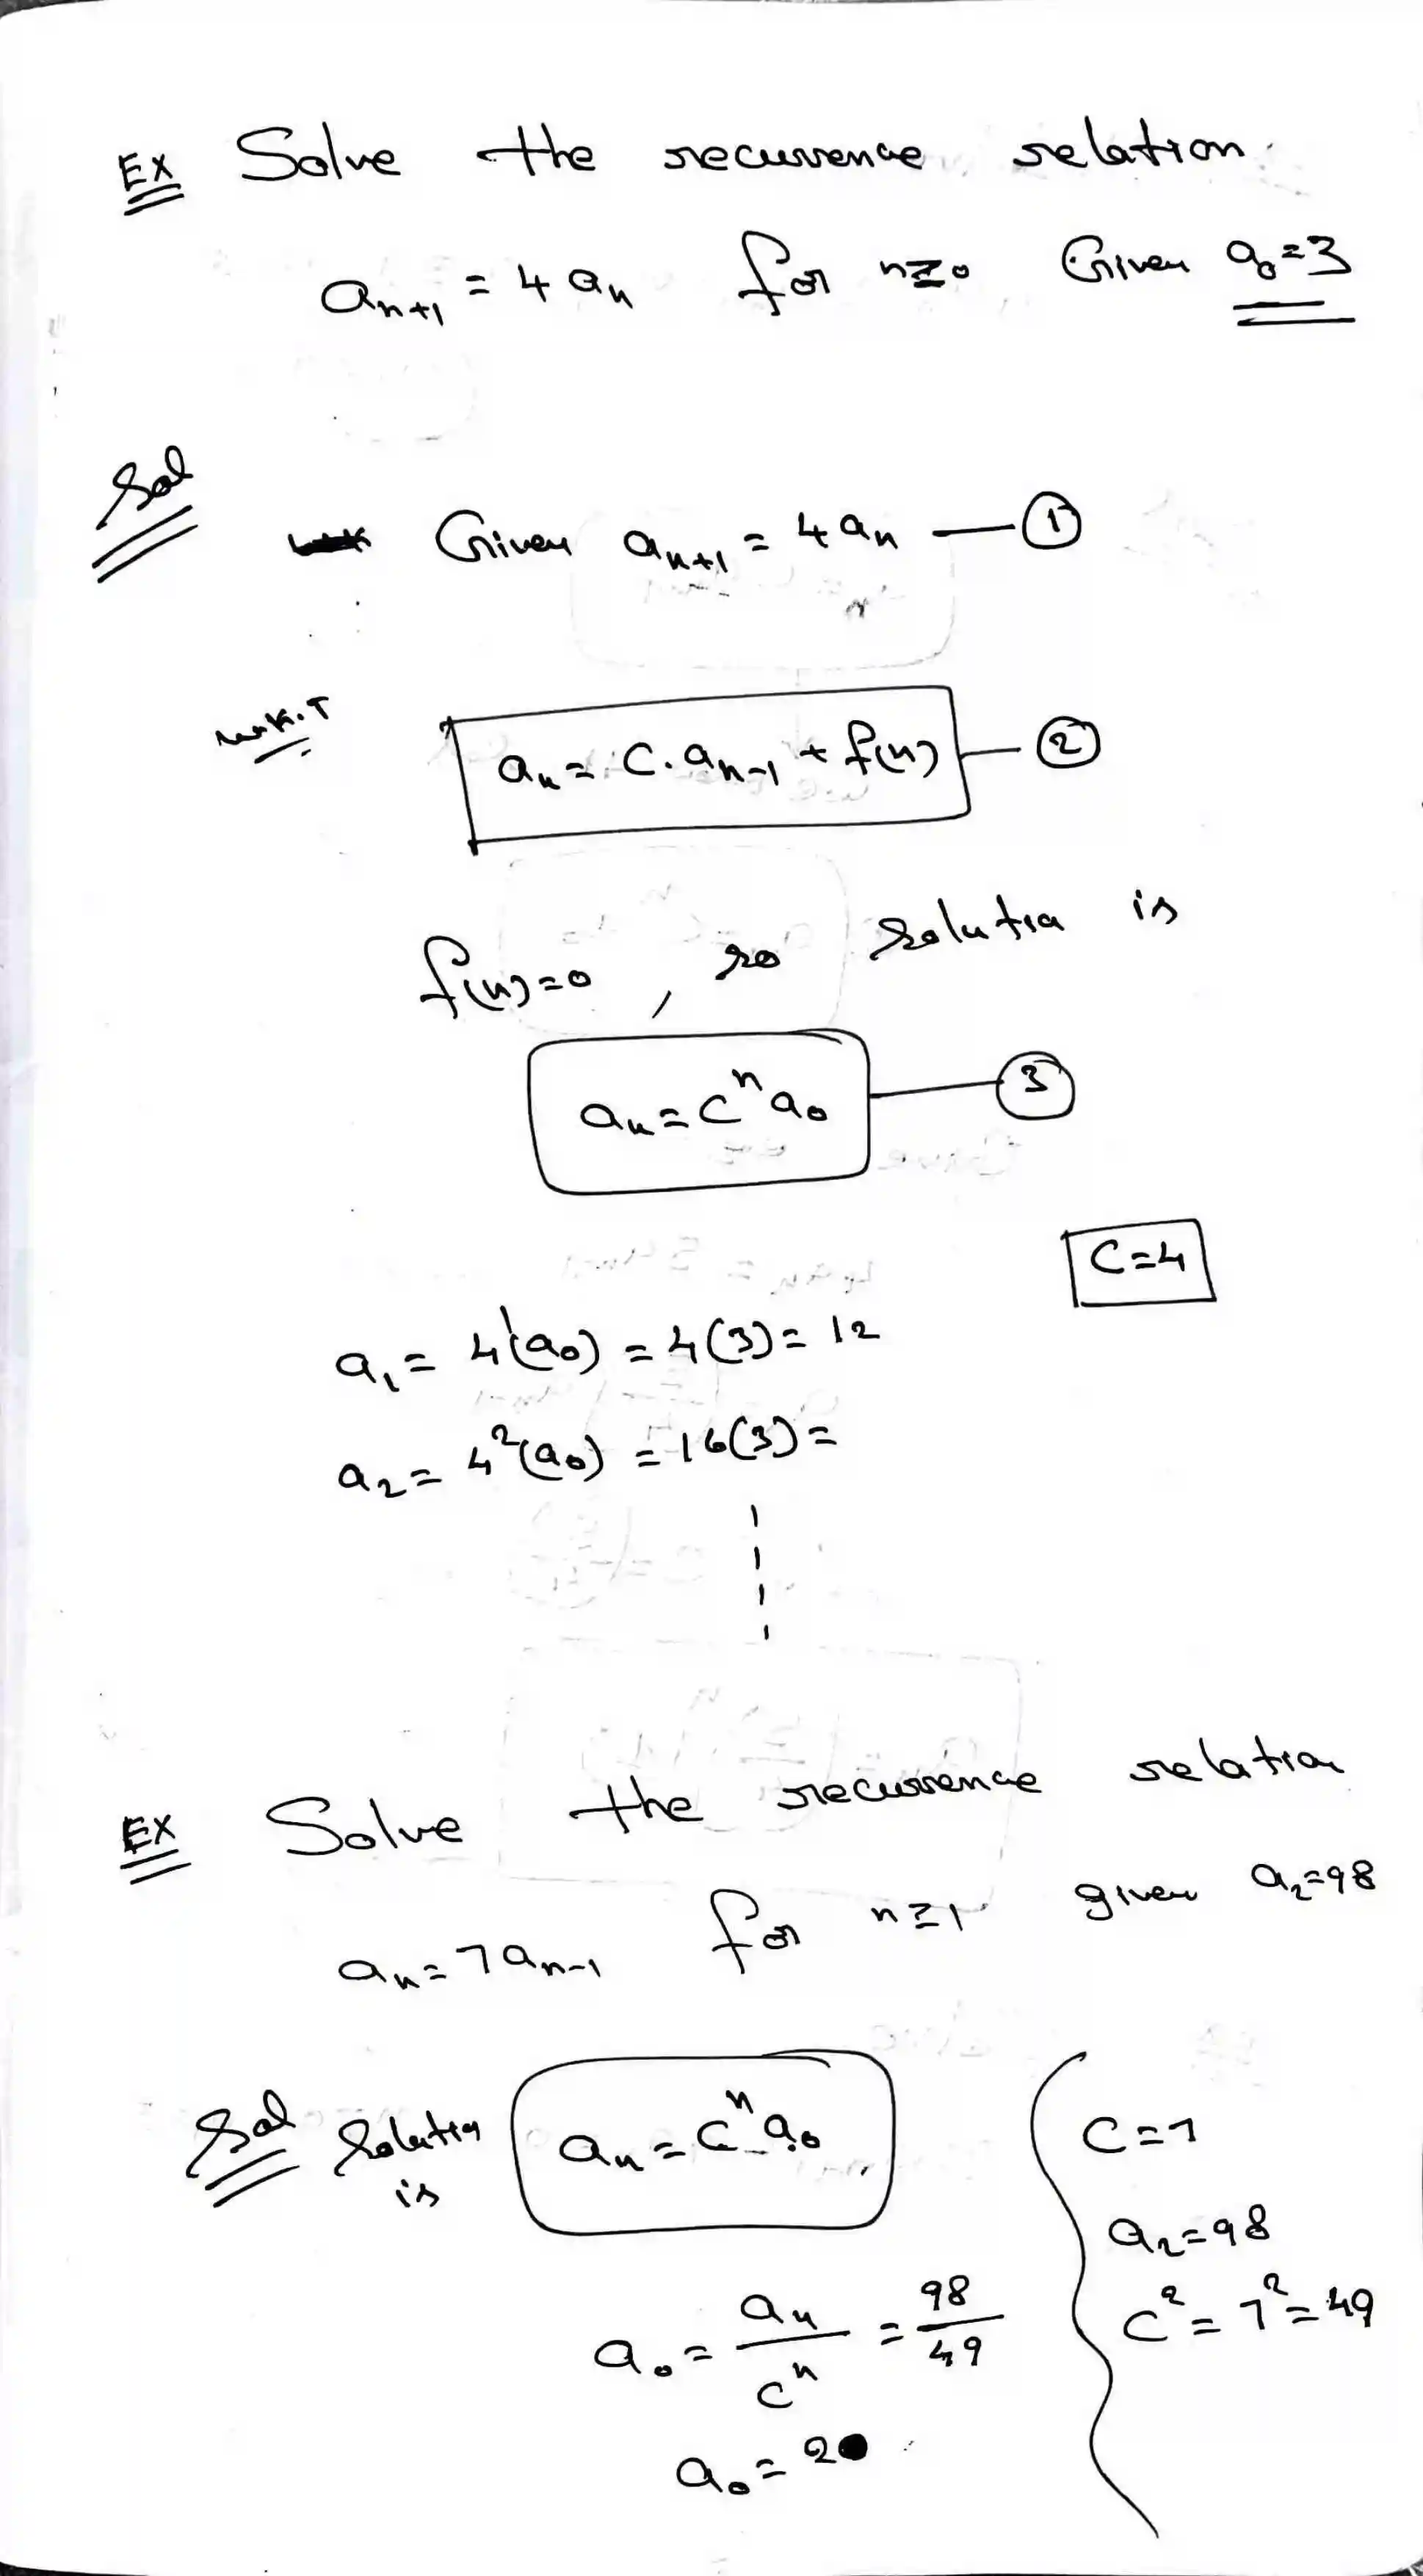 EX Solve the recurrence relation.
aₙ₊₁ = 4 aₙ for n≥0 Given a₀=3
Sol
Given aₙ₊₁ = 4 aₙ — ①
W.K.T
aₙ = C.aₙ₋₁ + f(n) — ②
f(n)=0, so solution is
aₙ = Cⁿ a₀ — ③
C=4
a₁ = 4¹(a₀) = 4(3) = 12
a₂ = 4²(a₀) = 16(3) =
EX Solve the recurrence relation
aₙ = 7 aₙ₋₁ for n≥1 given a₂=98
Sol Solution is
aₙ = Cⁿ a₀
C=7
a₂=98
C² = 7² = 49
a₀ = aₙ/Cⁿ = 98/49
a₀ = 2